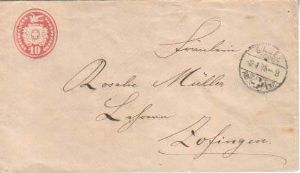 10
Fräulein
Rosalie Müller
Lehrerin
Zofingen.